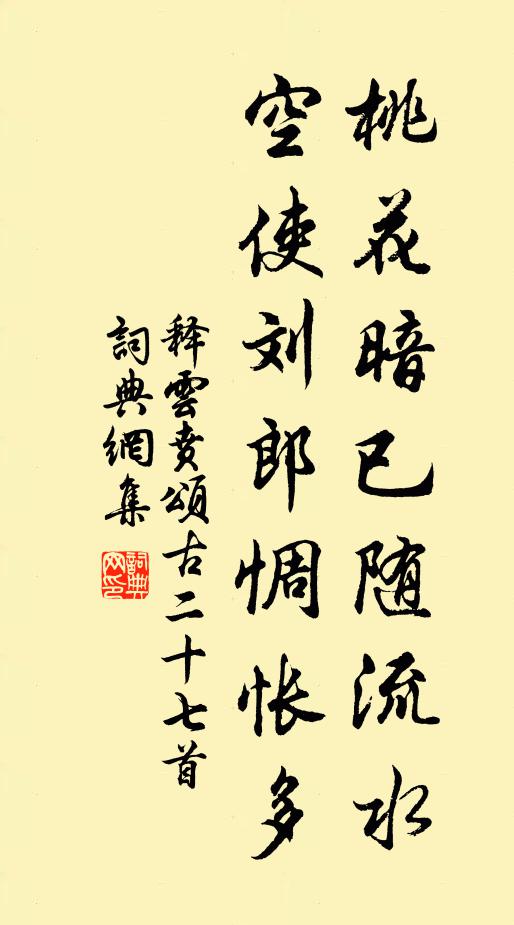 桃花暗已随流水
空使刘郎惆怅多
释雲賁頌古二十七首
詞典網集
詞典網印